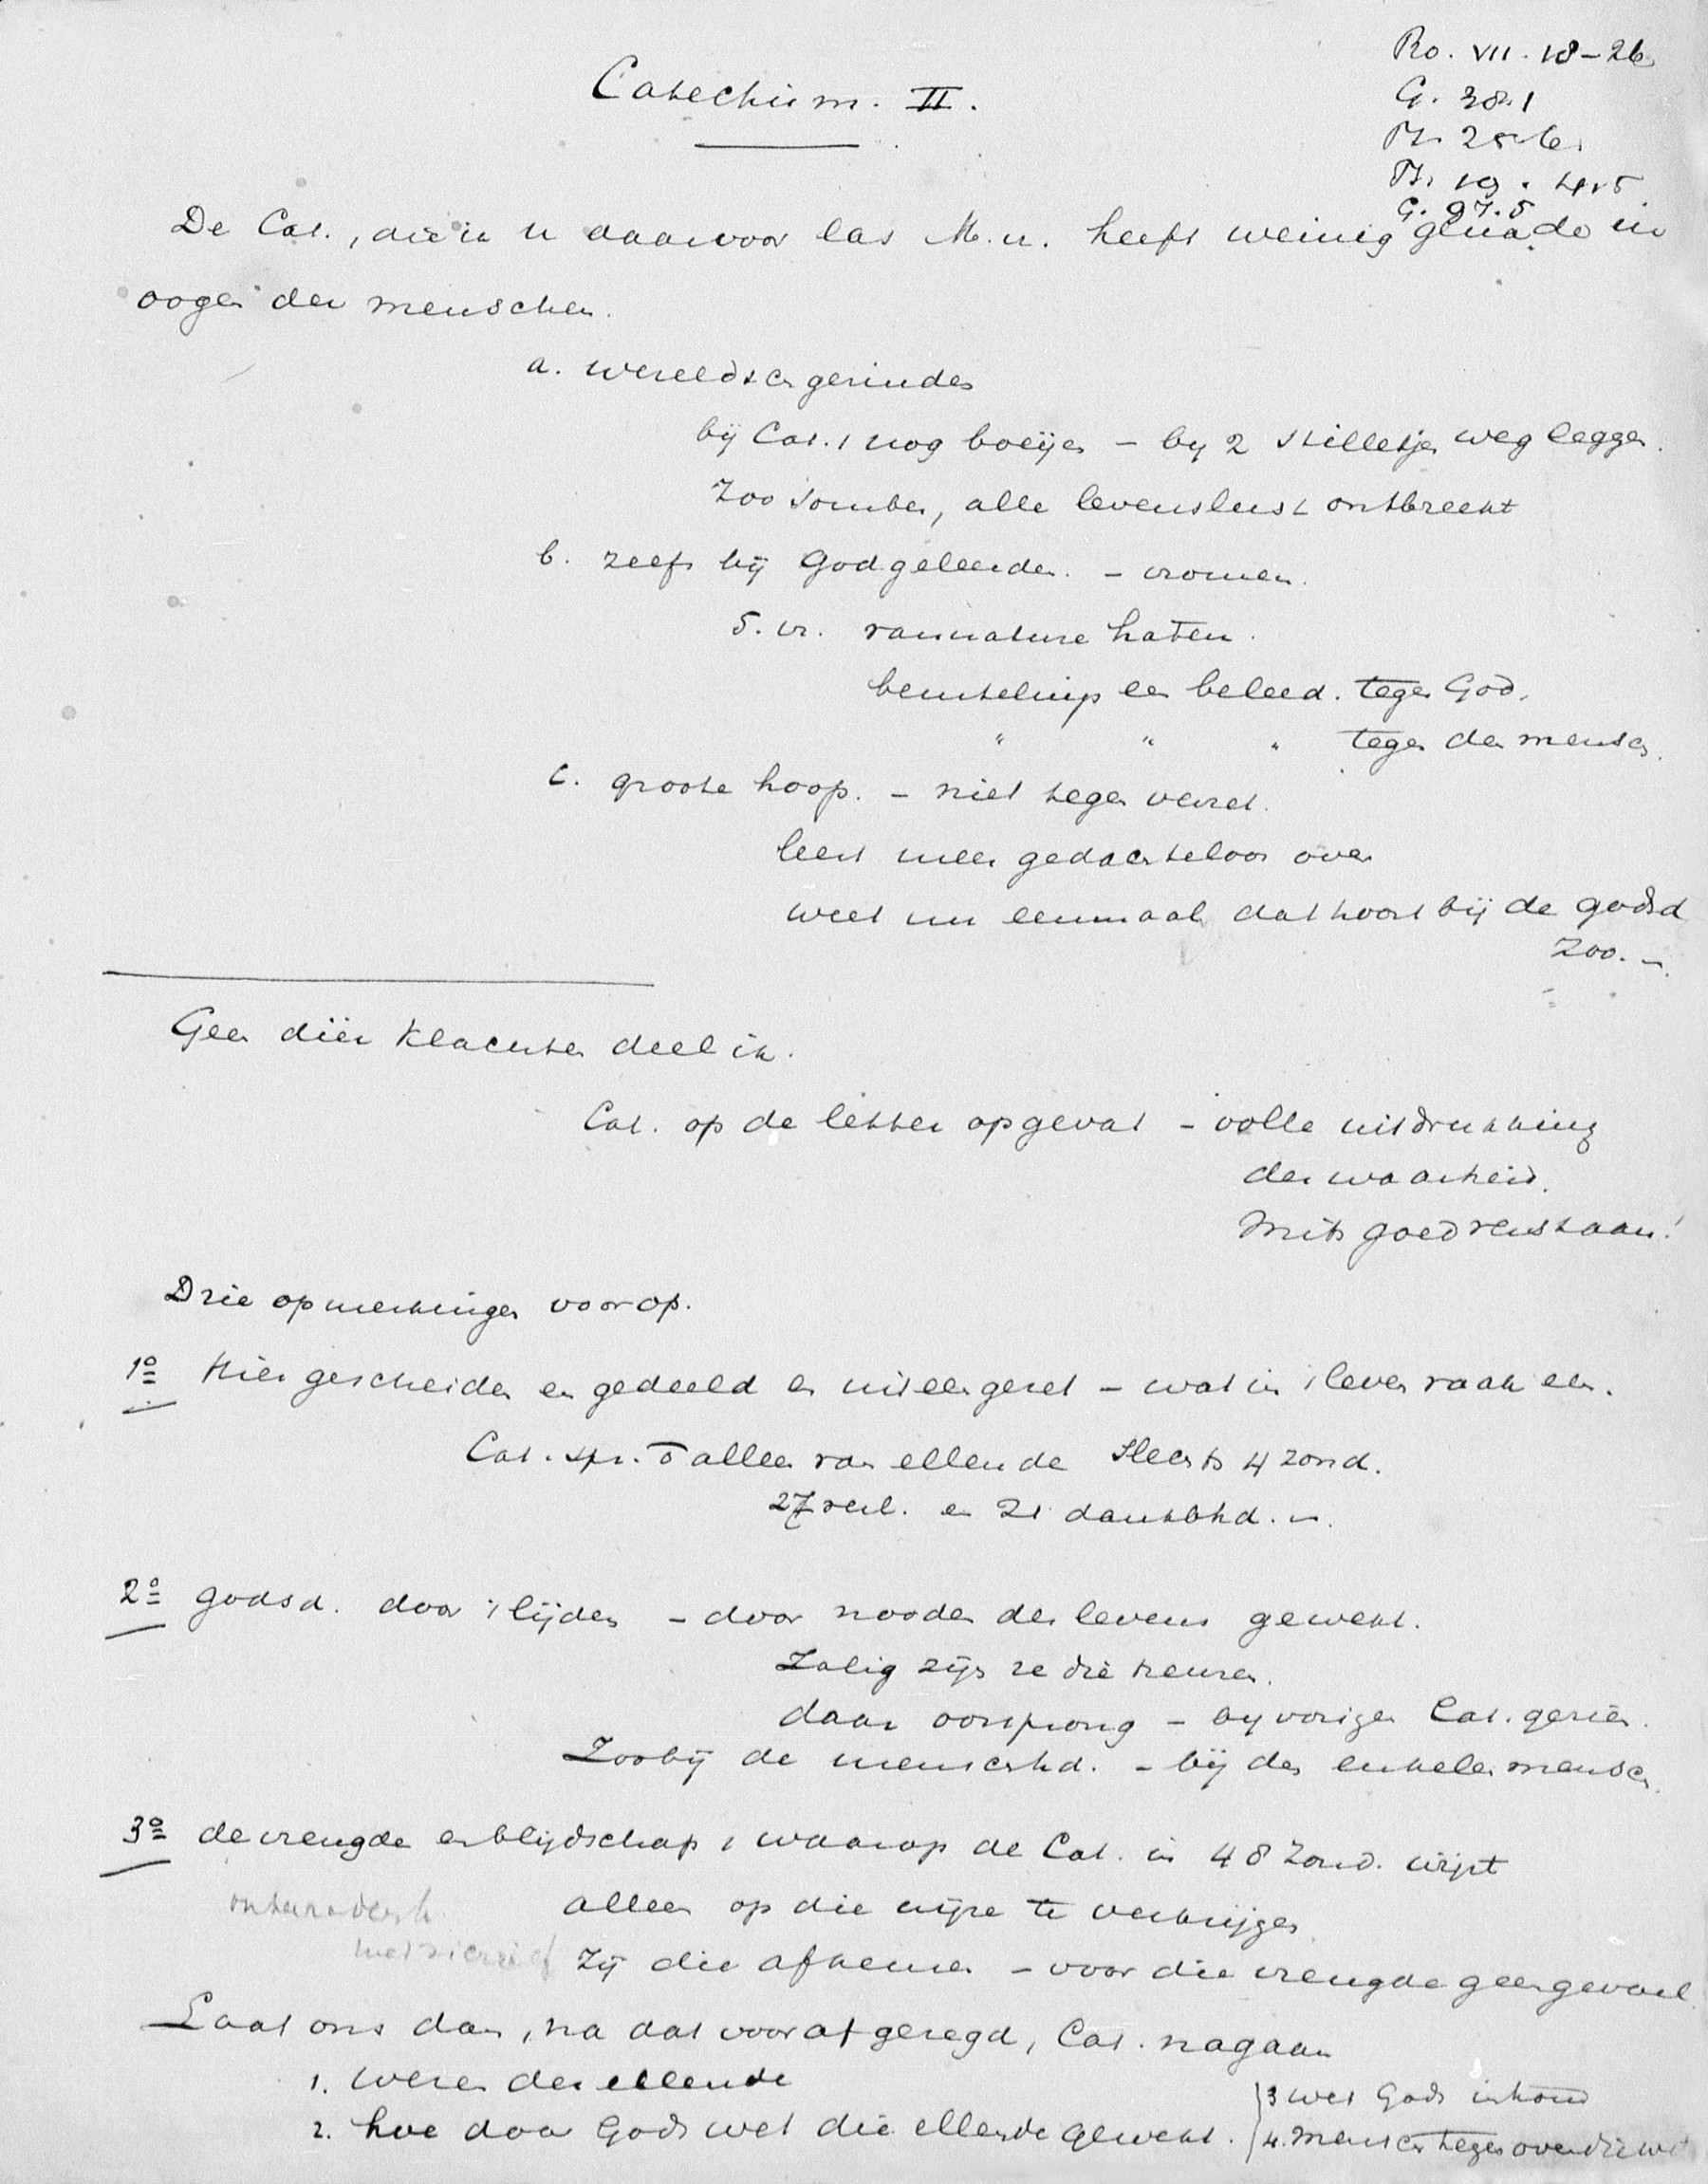 Ro. VII. 18-26
G. 38.1
Ps 25.6.
Ps. 19. 4.5
G. 97.5
Catechism. II.
De Cat., die ik u daarvoor las M.u. heeft weinig genade in
oogen der menschen.
a. wereldschgezinden
bij Cat. 1 nog boeijen – by 2 stilletjes weg leggen.
Zoo somber, alle levenslust ontbreekt
b. zelfs bij Godgeleerden. – vromen.
5. vr. van nature haten.
een beleed. tegen God.
" " " tegen den mensch.
c. groote hoop. – niet tegen verzet.
leest meer gedachteloos over
weet nu eenmaal dat hoort bij de godsd
Zoo. –
Geen diër klachten deel ik.
Cat. op de letter opgevat – volle uitdrukking
der waarheid.
Mits goed verstaan!
Drie opmerkingen voorop.
1º Hier gescheiden en gedeeld en uiteengezet – wat in 't leven vaak een.
Cat. spr. alleen van ellende Slechts 4 zond.
27 verl. en 21 dankbhd.
2º godsd. door 't lijden – door nooden des levens gewekt.
Zalig zijn ze die treuren.
daar oorsprong – by vorige Cat. gezien.
Zoo bij de menschhd. – bij den enkelen mensch.
3º de vreugde en blijdschap, waarop de Cat. in 48 Zond. wijst
alleen op die wijze te verkrijgen
Zij die afkeuren – voor die vreugde geen gevoel.
Laat ons dan, na dat vooraf gezegd, Cat. nagaan
1. wezen der ellende
2. hoe door Gods wet die ellende gewekt.
3 wet Gods inhoud
4. Mensch tegenover die wet